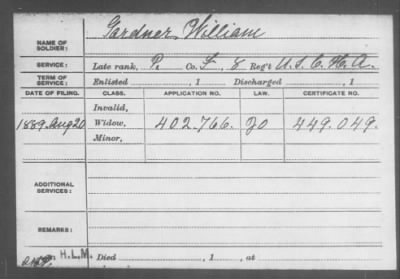 NAME OF SOLDIER: Gardner, William
SERVICE: Late rank, P. Co. F, 8 Reg't U.S.C.H.A.
TERM OF SERVICE: Enlisted , 1 Discharged , 1
DATE OF FILING. CLASS. APPLICATION NO. LAW. CERTIFICATE NO.
Invalid,
1889. Aug 20 Widow, 402.766. 20 449.049.
Minor,
ADDITIONAL SERVICES:
REMARKS:
H.L.M. Died , 1 , at